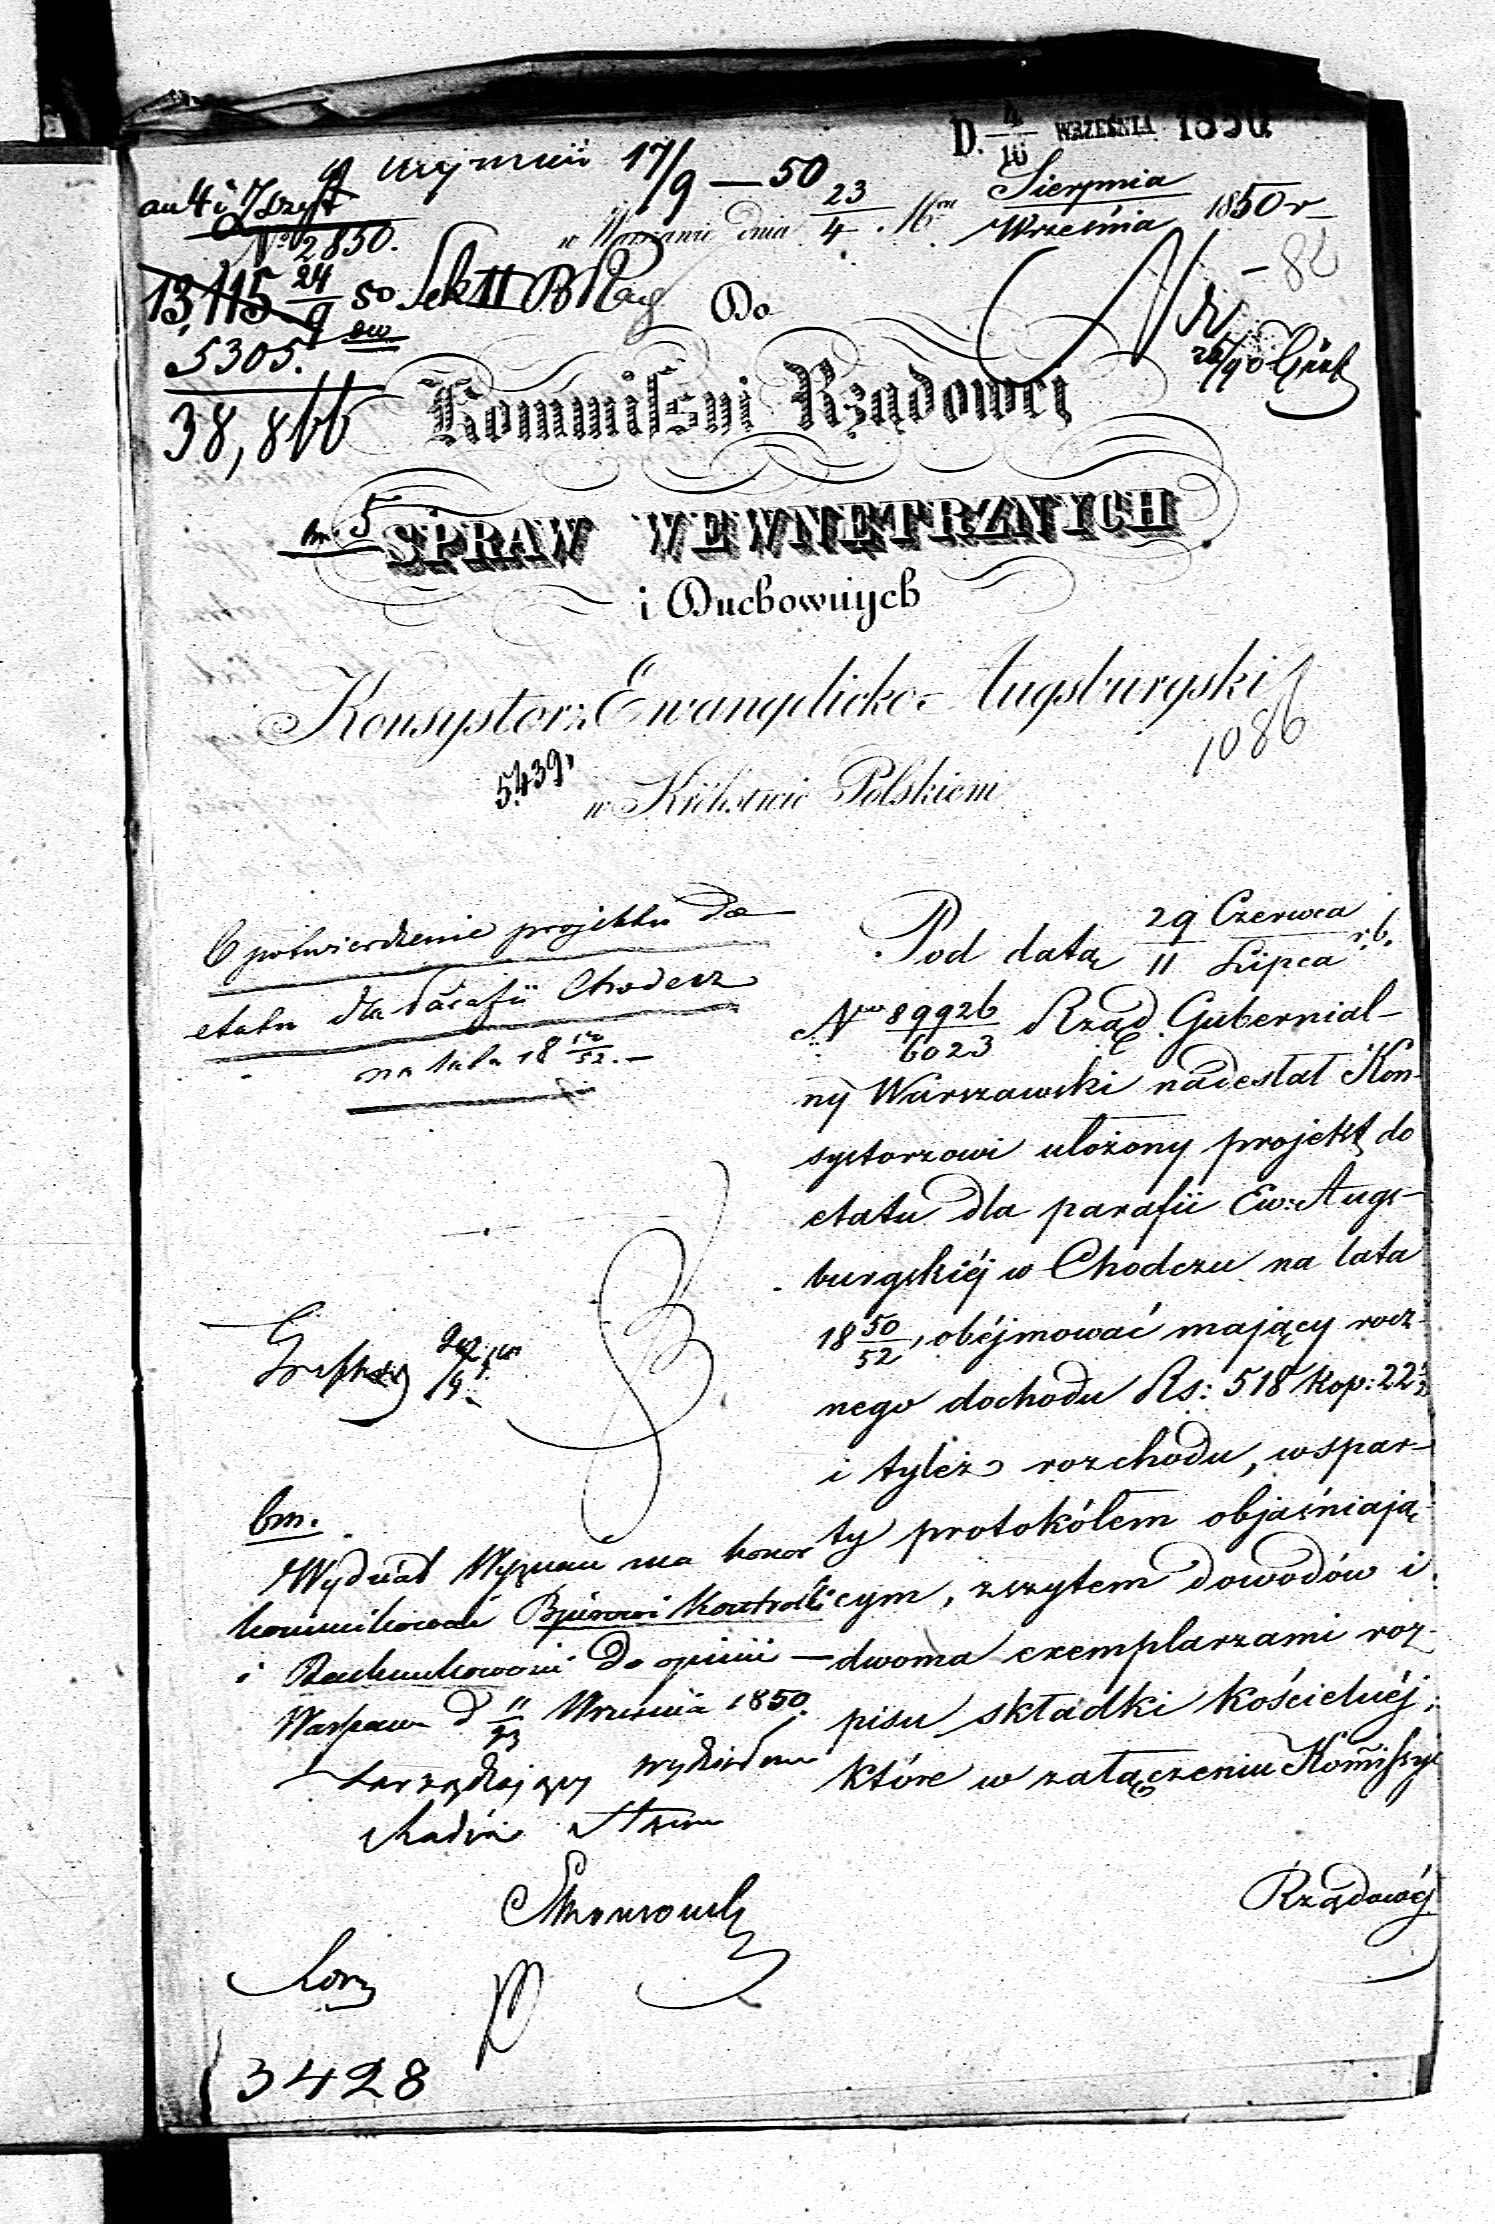 D. 4/16 WRZEŚNIA 1850.
17/9 — 50
w Warszawie dnia 23/4 Sierpnia/Września 1850 r
an 4 i 7 szyt
№ 2850.
13,115 24/9 50 Sek II
5305.
38,866
82
Do
Kommissyi Rządowej
bm. 5
SPRAW WEWNĘTRZNYCH
i Duchownych
Konsystorz Ewangelicko-Augsburgski
1086
5439
w Królestwie Polskiem
O potwierdzenie projektu do
etatu dla Parafii Chodecz
na lata 18 50/52. —
Pod datą 29 Czerwca/11 Lipca r. b.
Nro 89926/6023 Rząd Gubernial-
ny Warszawski nadesłał Kon-
systorzowi ułożony projekt do
etatu dla parafii Ew: Augs-
burgskiéj w Chodczu na lata
18 50/52, obéjmować mający rocz-
nego dochodu Rs: 518 kop: 22½
i tyleż rozchodu, wspar-
ty protokółem objaśniają-
cym, zszytem dowodów i
dwoma exemplarzami roz-
pisu składki kościelnéj,
które w załączeniu Kommissyi
Rządowéj
bm.
Wydział Wyznań ma honor
kommunikować Bjórowi Kontroli
i Rachunkowości do opinii —
Warszawa d 11/23 Września 1850.
Zarządzający wydziałem
Radca Stanu
3428